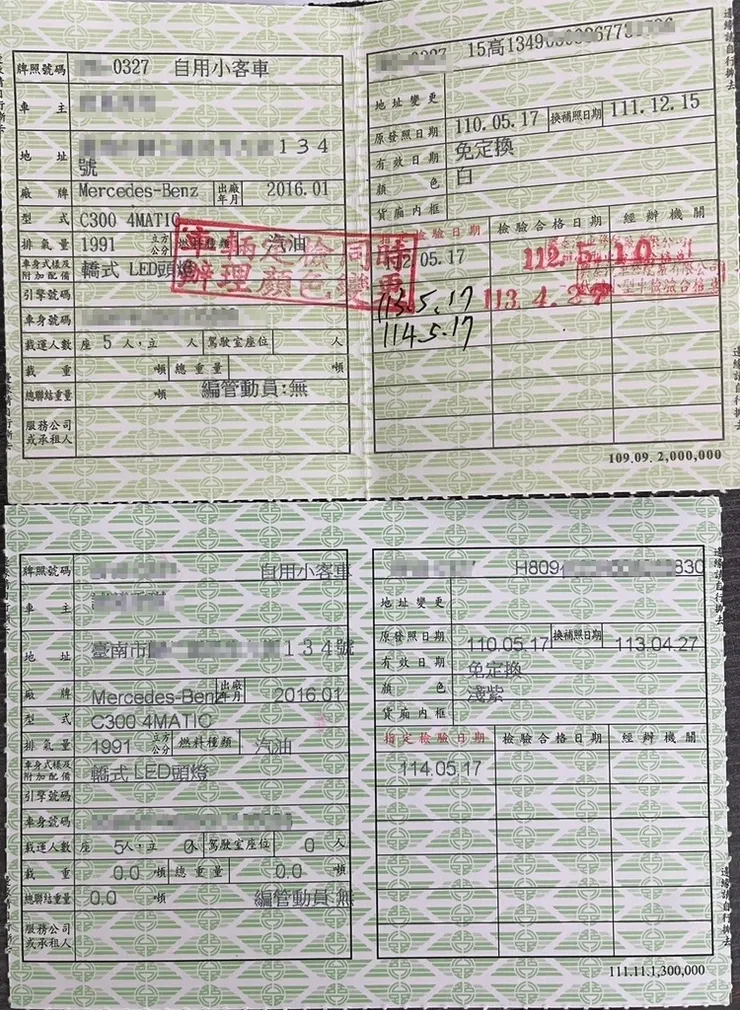 牌照號碼 -0327 自用小客車
車主
地址 134
號
廠牌 Mercedes-Benz 出廠年月 2016.01
型式 C300 4MATIC
排氣量 1991 立方公分 燃料種類 汽油
車身式樣及附加配備 轎式 LED頭燈
引擎號碼
車身號碼
載運人數 座 5 人,立 人 駕駛室座位 人
載重 噸 總重量 噸
總聯結重量 噸 編管動員:無
服務公司或承租人
車輛定檢同時
辦理顏色變更
-0327 15高1349
地址變更
原發照日期 110.05.17 換補照日期 111.12.15
有效日期 免定換
顏色 白
貨廂內框
指定檢驗日期 檢驗合格日期 經辦機關
112.05.17 112.5.10
113.5.17 113.4.27
114.5.17
109.09. 2,000,000
牌照號碼 自用小客車
車主
地址 臺南市 134號
廠牌 Mercedes-Benz 出廠年月 2016.01
型式 C300 4MATIC
排氣量 1991 立方公分 燃料種類 汽油
車身式樣及附加配備 轎式 LED頭燈
引擎號碼
車身號碼
載運人數 座 5人,立 0人 駕駛室座位 0 人
載重 0.0 噸 總重量 0.0 噸
總聯結重量 0.0 噸 編管動員:無
服務公司或承租人
H809 830
地址變更
原發照日期 110.05.17 換補照日期 113.04.27
有效日期 免定換
顏色 淺紫
貨廂內框
指定檢驗日期 檢驗合格日期 經辦機關
114.05.17
111.11.1,300,000